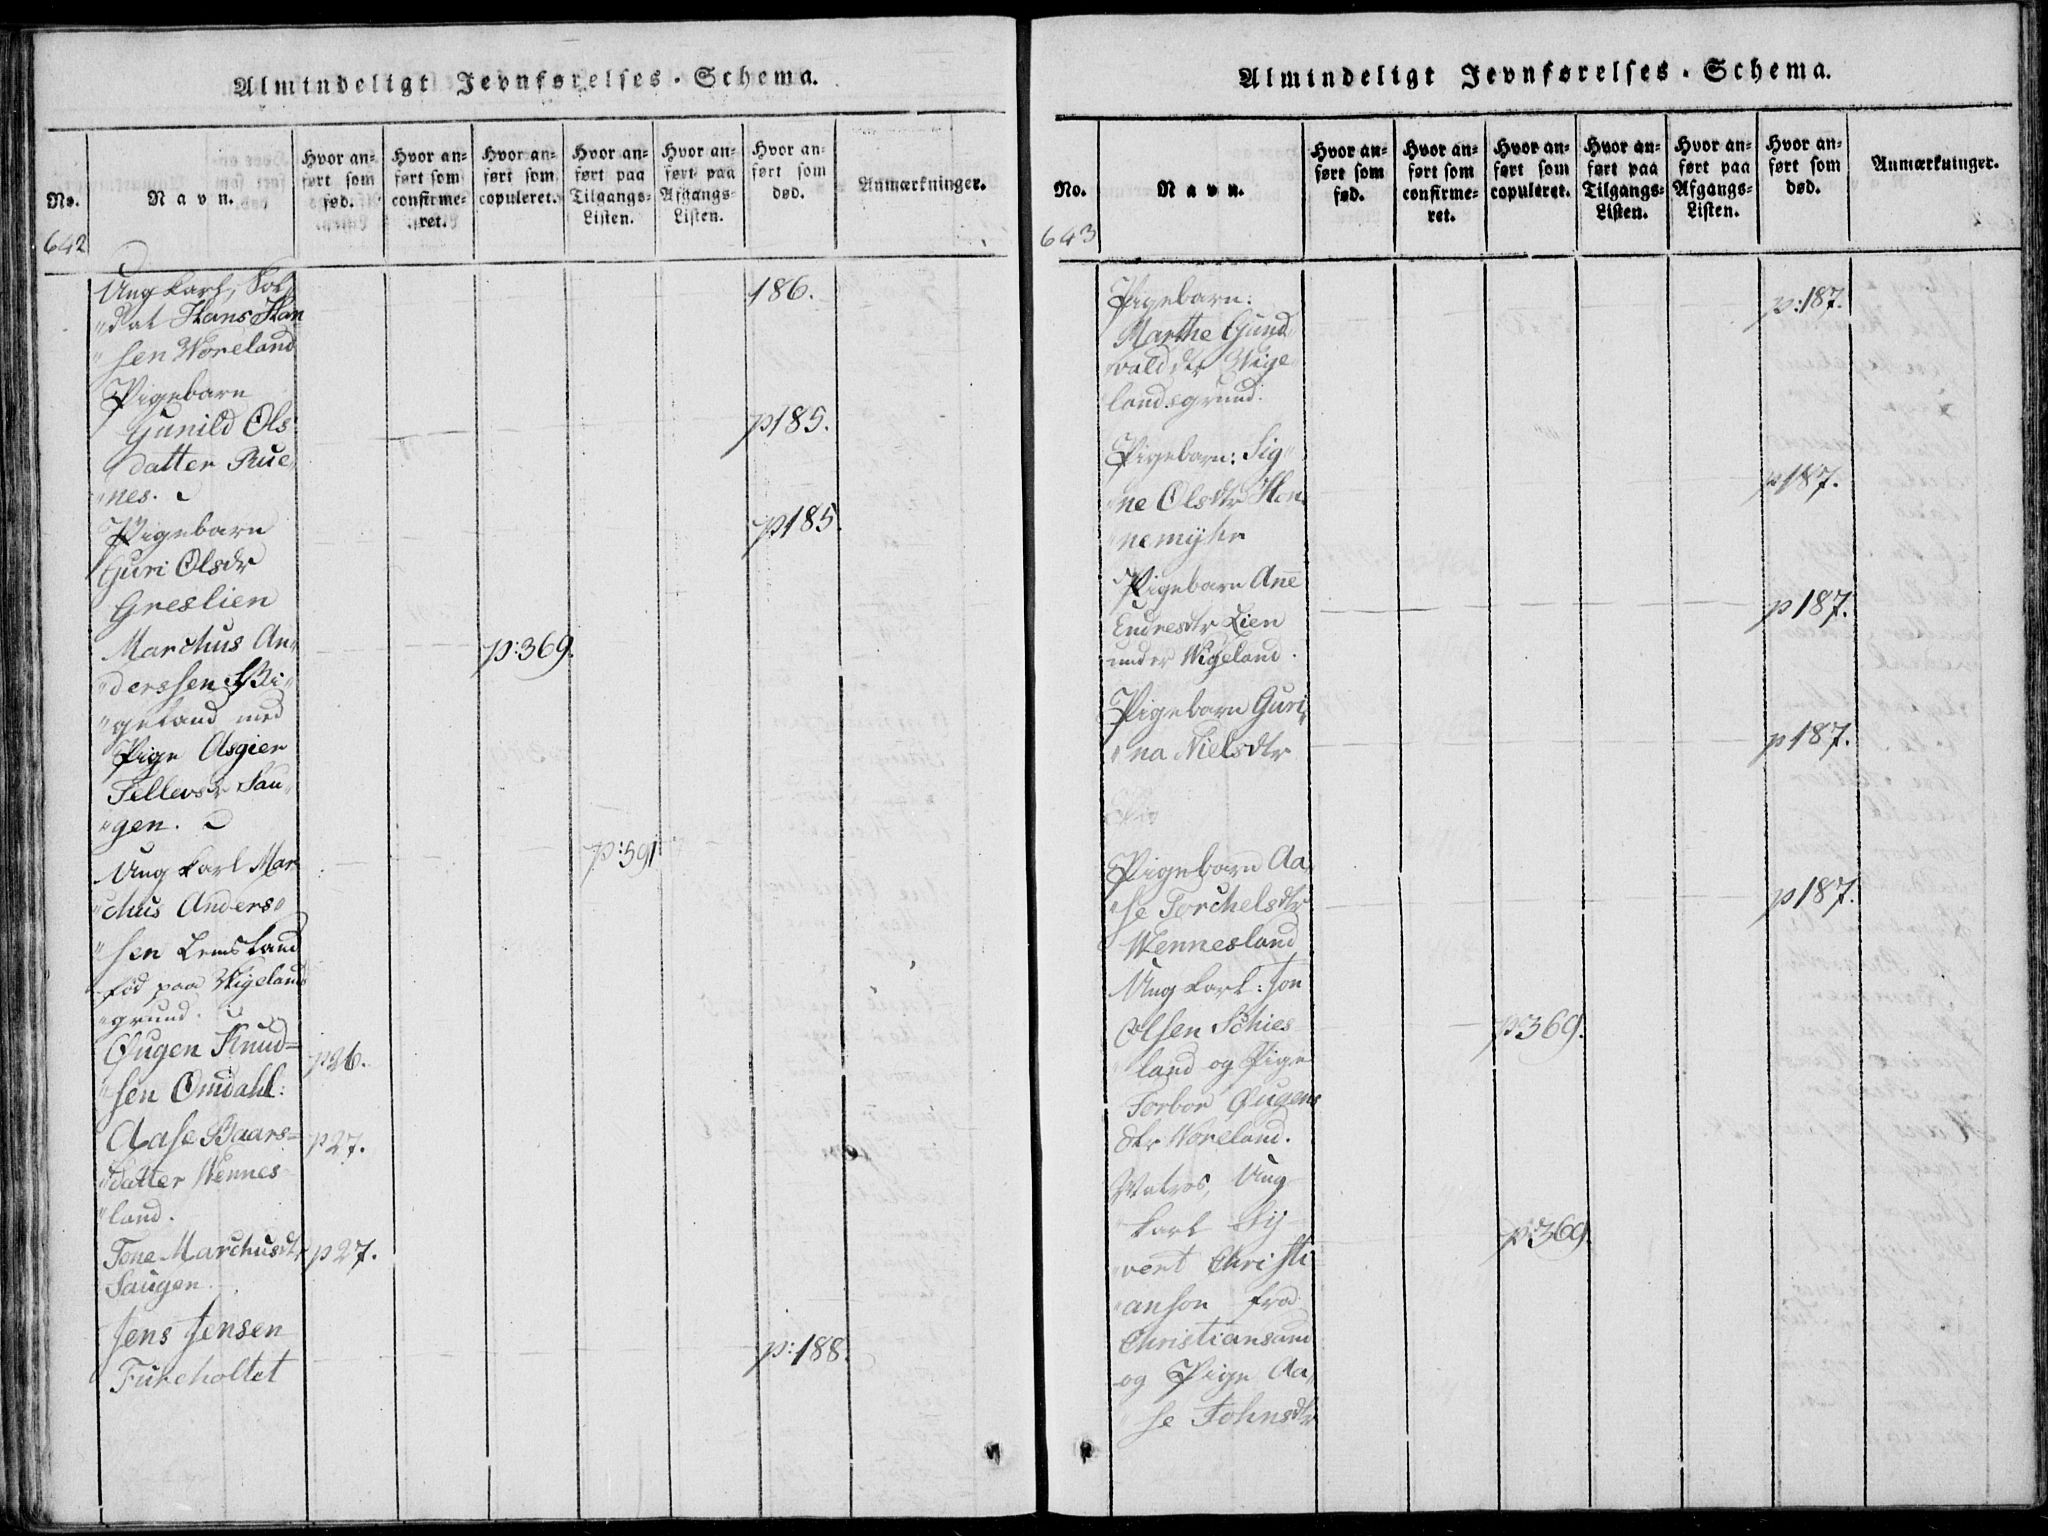 Almindeligt Jevnførelses-Schema.
No.
Navn.
Hvor an-
ført som
fød.
Hvor an-
ført som
confirme-
ret.
Hvor an-
ført som
copuleret.
Hvor an-
ført paa
Tilgangs-
Listen.
Hvor an-
ført paa
Afgangs-
Listen.
Hvor an-
ført som
død.
Anmærkninger.
642
Ung karl, Sol,, 186.
"dat Hans Han
"sen Woreland
Pigebarn
Gunild Ols p185.
datter Rue"
"nes.
Pigebarn p185.
Guri Olsdr
Greslien
Marchus An" p:369.
"derssen Wi"
"geland med
Pige Asgier
Tellevsdr Sau"
"gen.
Ung karl Mar p:591
"chus Anders"
"sen
fød paa Wigelands
"grund.
Øugen Knud= p26.
"sen Omdahl:
Aase Baars= p27.
"datter Wennes
"land.
Tone Marchusdtr p27.
Saugen.
Jens Jensen p:188.
Fureholtet
Almindeligt Jevnførelses-Schema.
No.
Navn.
Hvor an-
ført som
fød.
Hvor an-
ført som
confirme-
ret.
Hvor an-
ført som
copuleret.
Hvor an-
ført paa
Tilgangs-
Listen.
Hvor an-
ført paa
Afgangs-
Listen.
Hvor an-
ført som
død.
Anmærkninger.
643
Pigebarn: p:187.
Marthe Gund
valdsdtr Wige"
landsgrund.
Pigebarn: Sig" p187.
"ne Olsdtr Hen
"nemyhr
Pigebarn Ane p187.
Endresdtr Lien
under Wigeland.
Pigebarn Guri" p187.
"na Nielsdtr
Pigebarn Aa" p187.
"se Torchelsdtr
Wennesland
Ung karl: Jon
Olsen Schies p369.
"land og Pige
Torbor Øugens
dtr Woreland.
Matros, Ung
karl Sy p369.
"vert Christi
"anson fra
Christiansand
og Pige Aa"
"se Johnsdtr